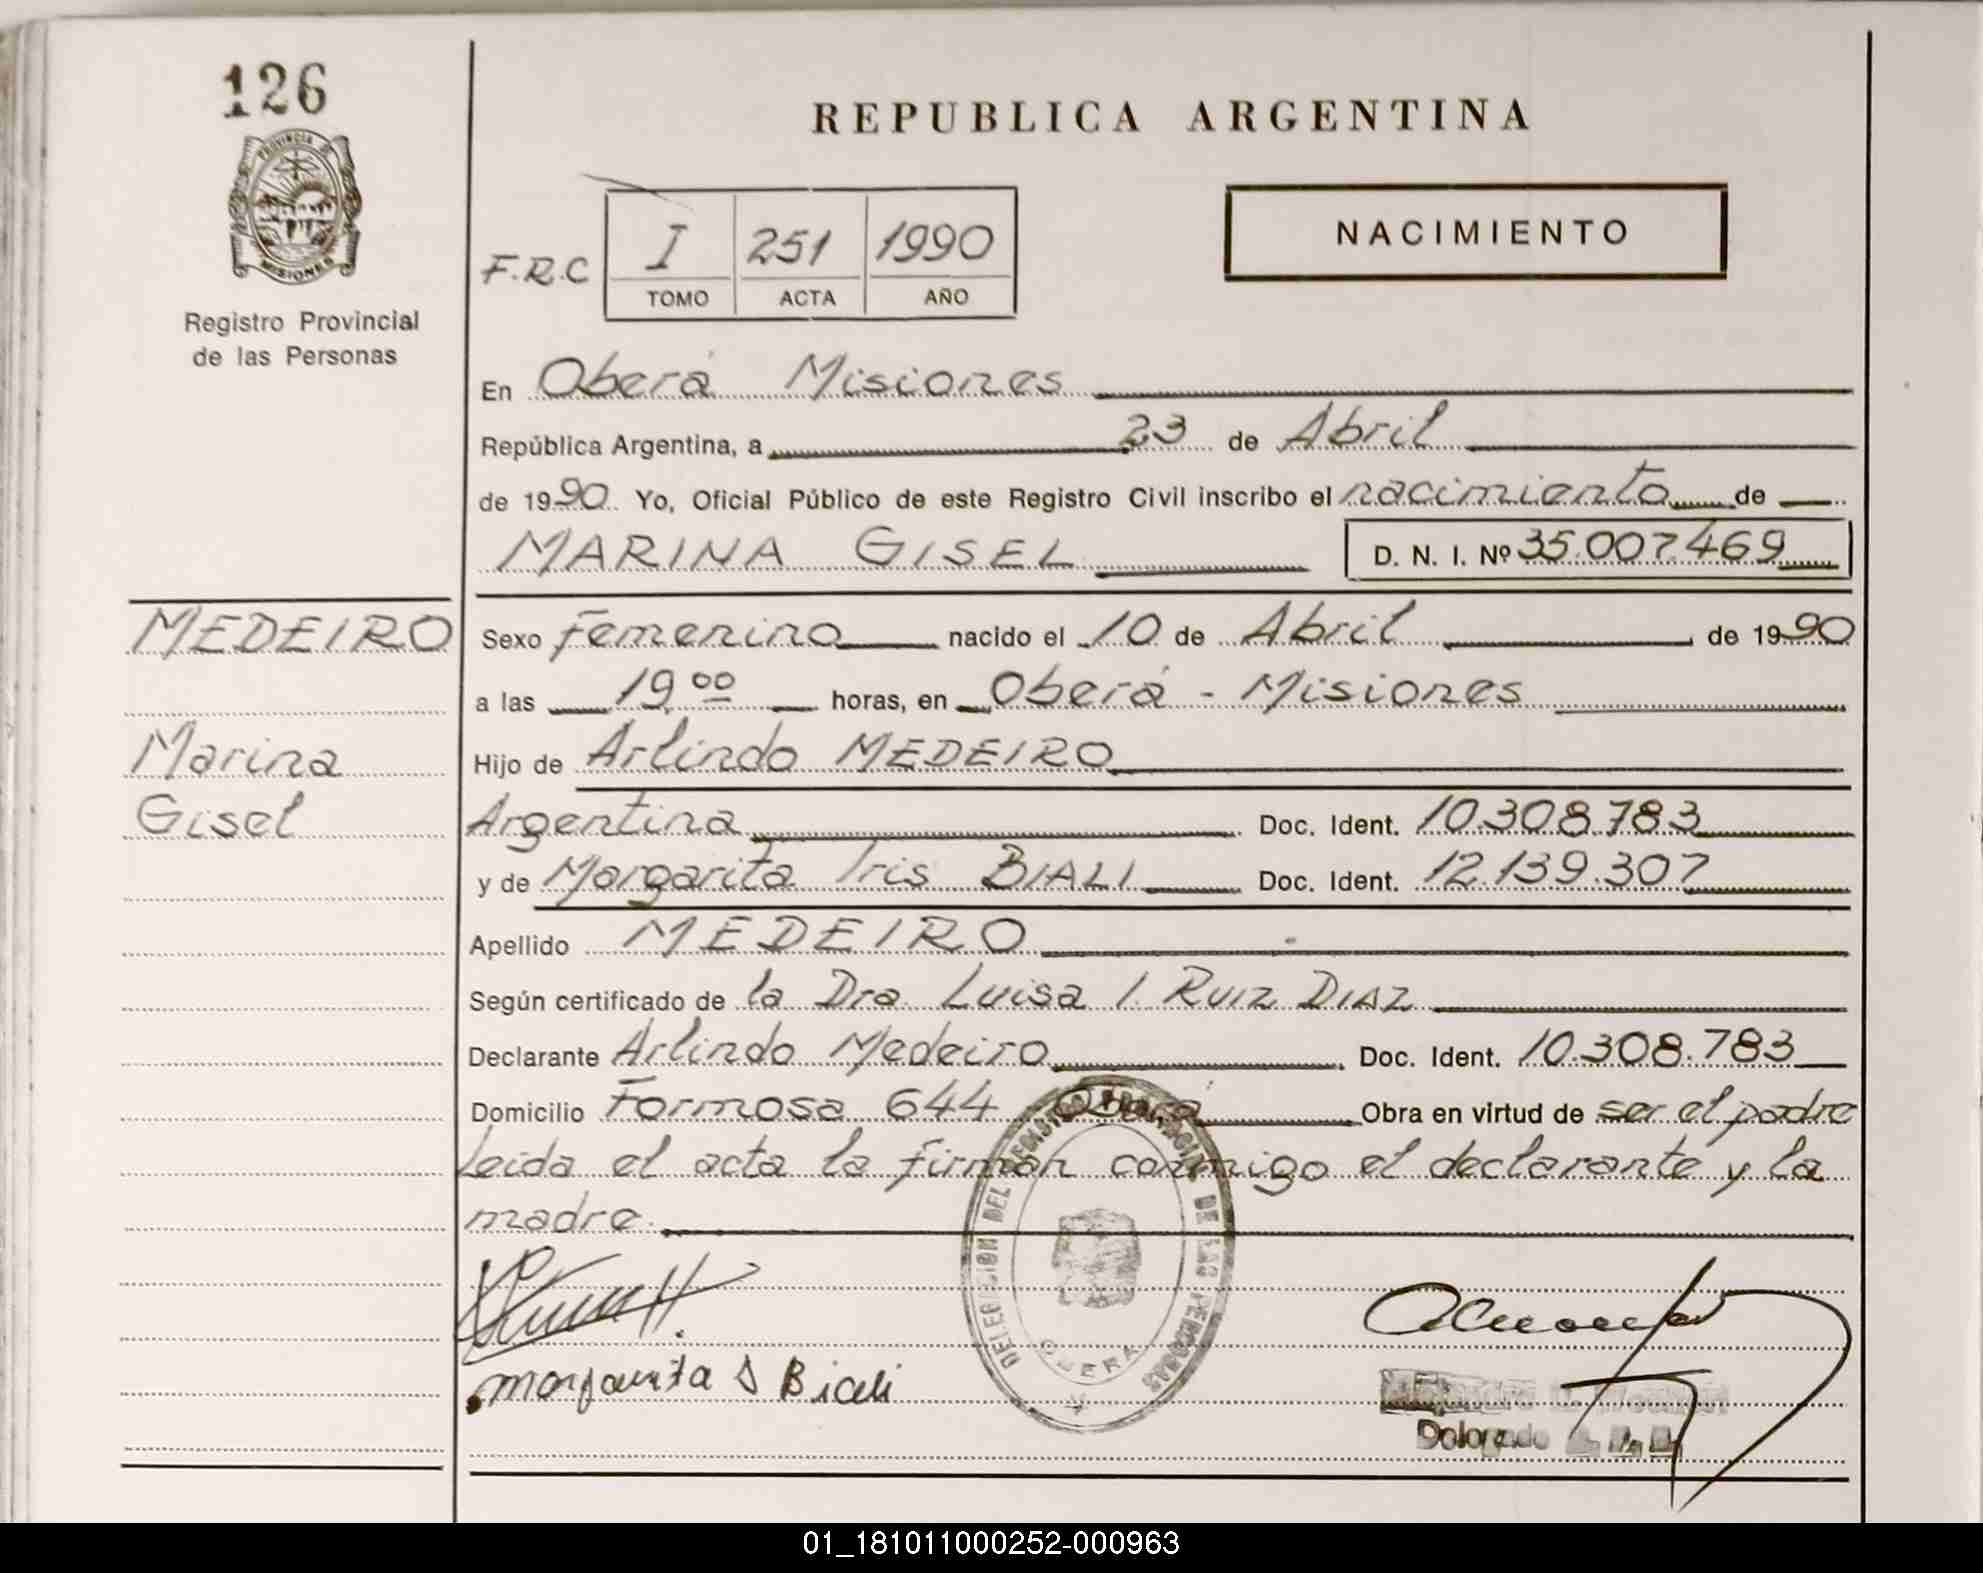 126
PROVINCIA DE
MISIONES
Registro Provincial
de las Personas
REPUBLICA ARGENTINA
F.R.C
I 251 1990
TOMO ACTA AÑO
NACIMIENTO
En Oberá Misiones
República Argentina, a 23 de Abril
de 1990 Yo, Oficial Público de este Registro Civil inscribo el nacimiento de
MARINA GISEL D. N. I. Nº 35.007.469
MEDEIRO
Marina
Gisel
Sexo femenino nacido el 10 de Abril de 1990
a las 19,00 horas, en Oberá - Misiones
Hijo de Arlindo MEDEIRO
Argentina Doc. Ident. 10.308.783
y de Margarita Iris BIALI Doc. Ident. 12.139.307
Apellido MEDEIRO
Según certificado de la Dra Luisa I. RUIZ DIAZ
Declarante Arlindo Medeiro Doc. Ident. 10.308.783
Domicilio Formosa 644 Oberá Obra en virtud de ser el padre
Leida el acta la firman conmigo el declarante y la
madre.
DELEGACION DEL REGISTRO PROVINCIAL DE LAS PERSONAS
OBERA
margarita I Biali
01_181011000252-000963